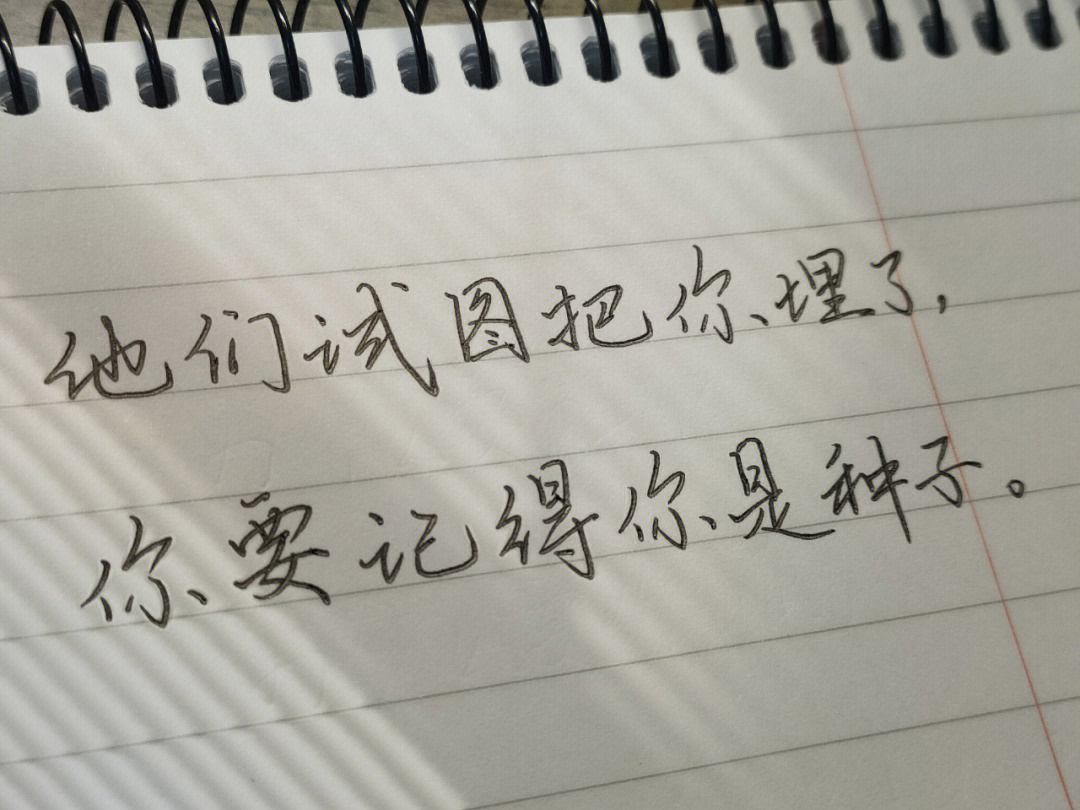 他们试图把你埋了，
你要记得你是种子。